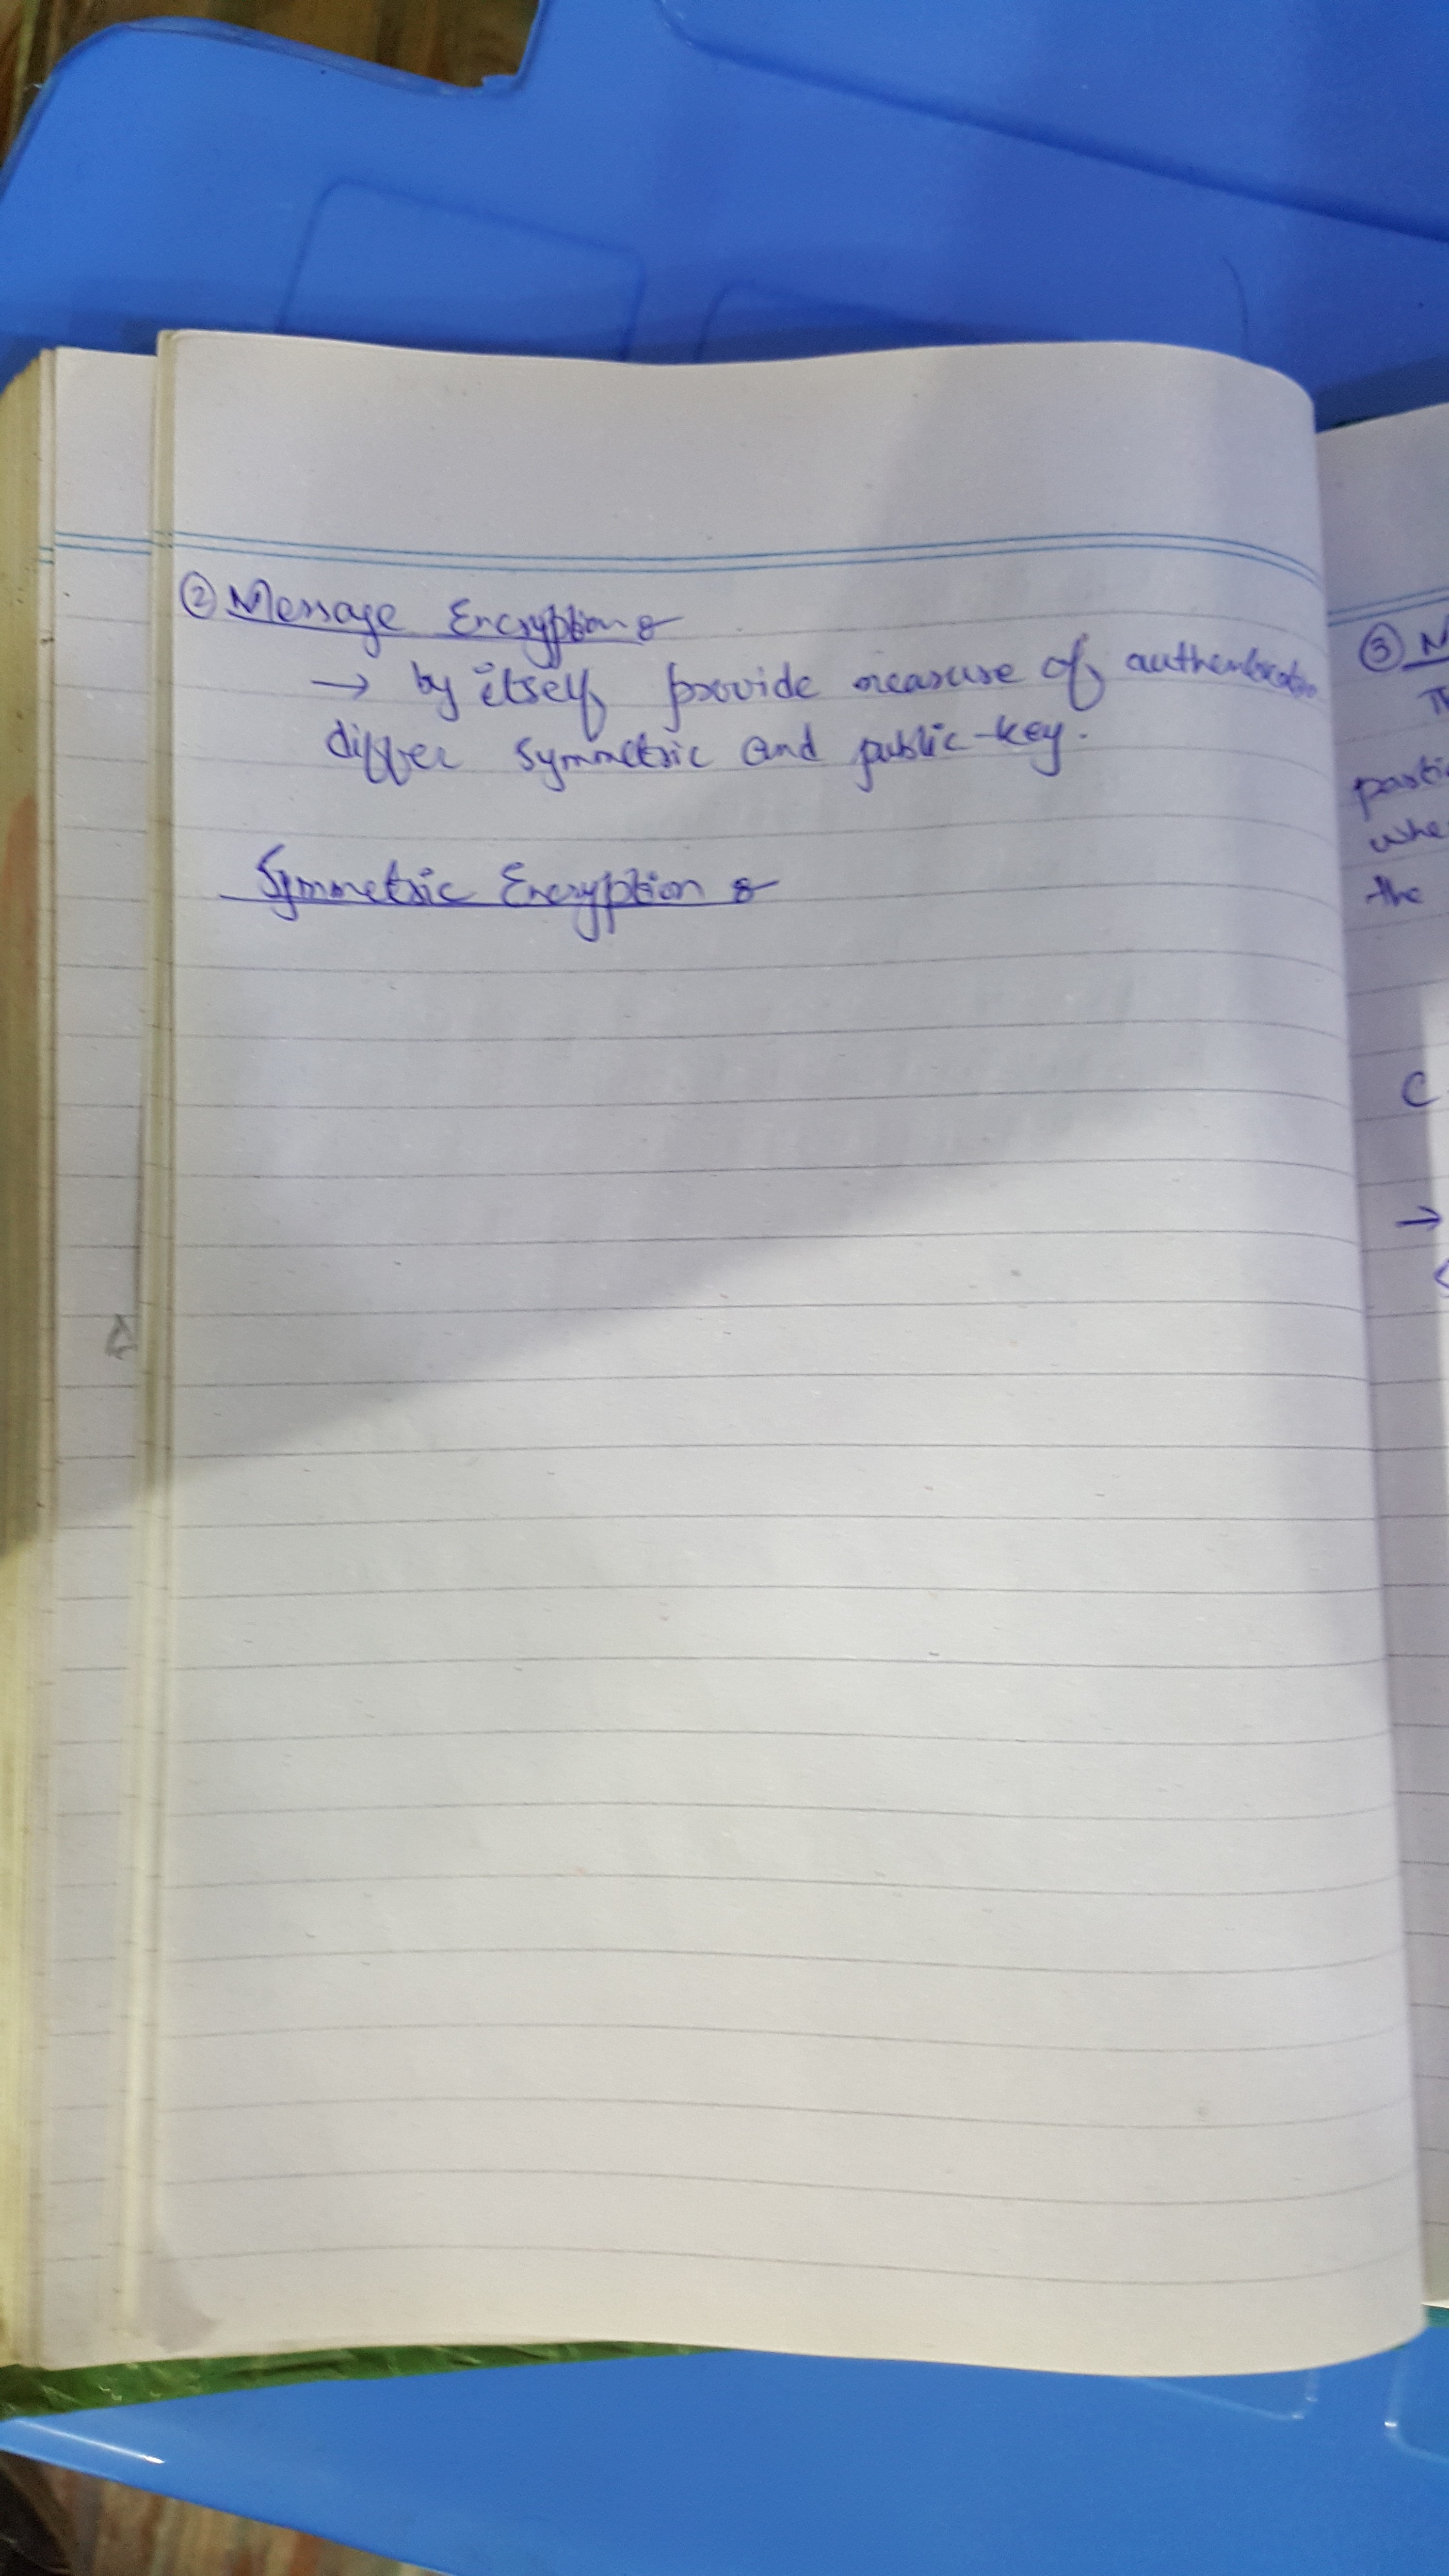 ② Message Encryption :-
→ by itself provide measure of authentication
differ symmetric and public-key.
Symmetric Encryption :-
③
parti
whe
the
C
→